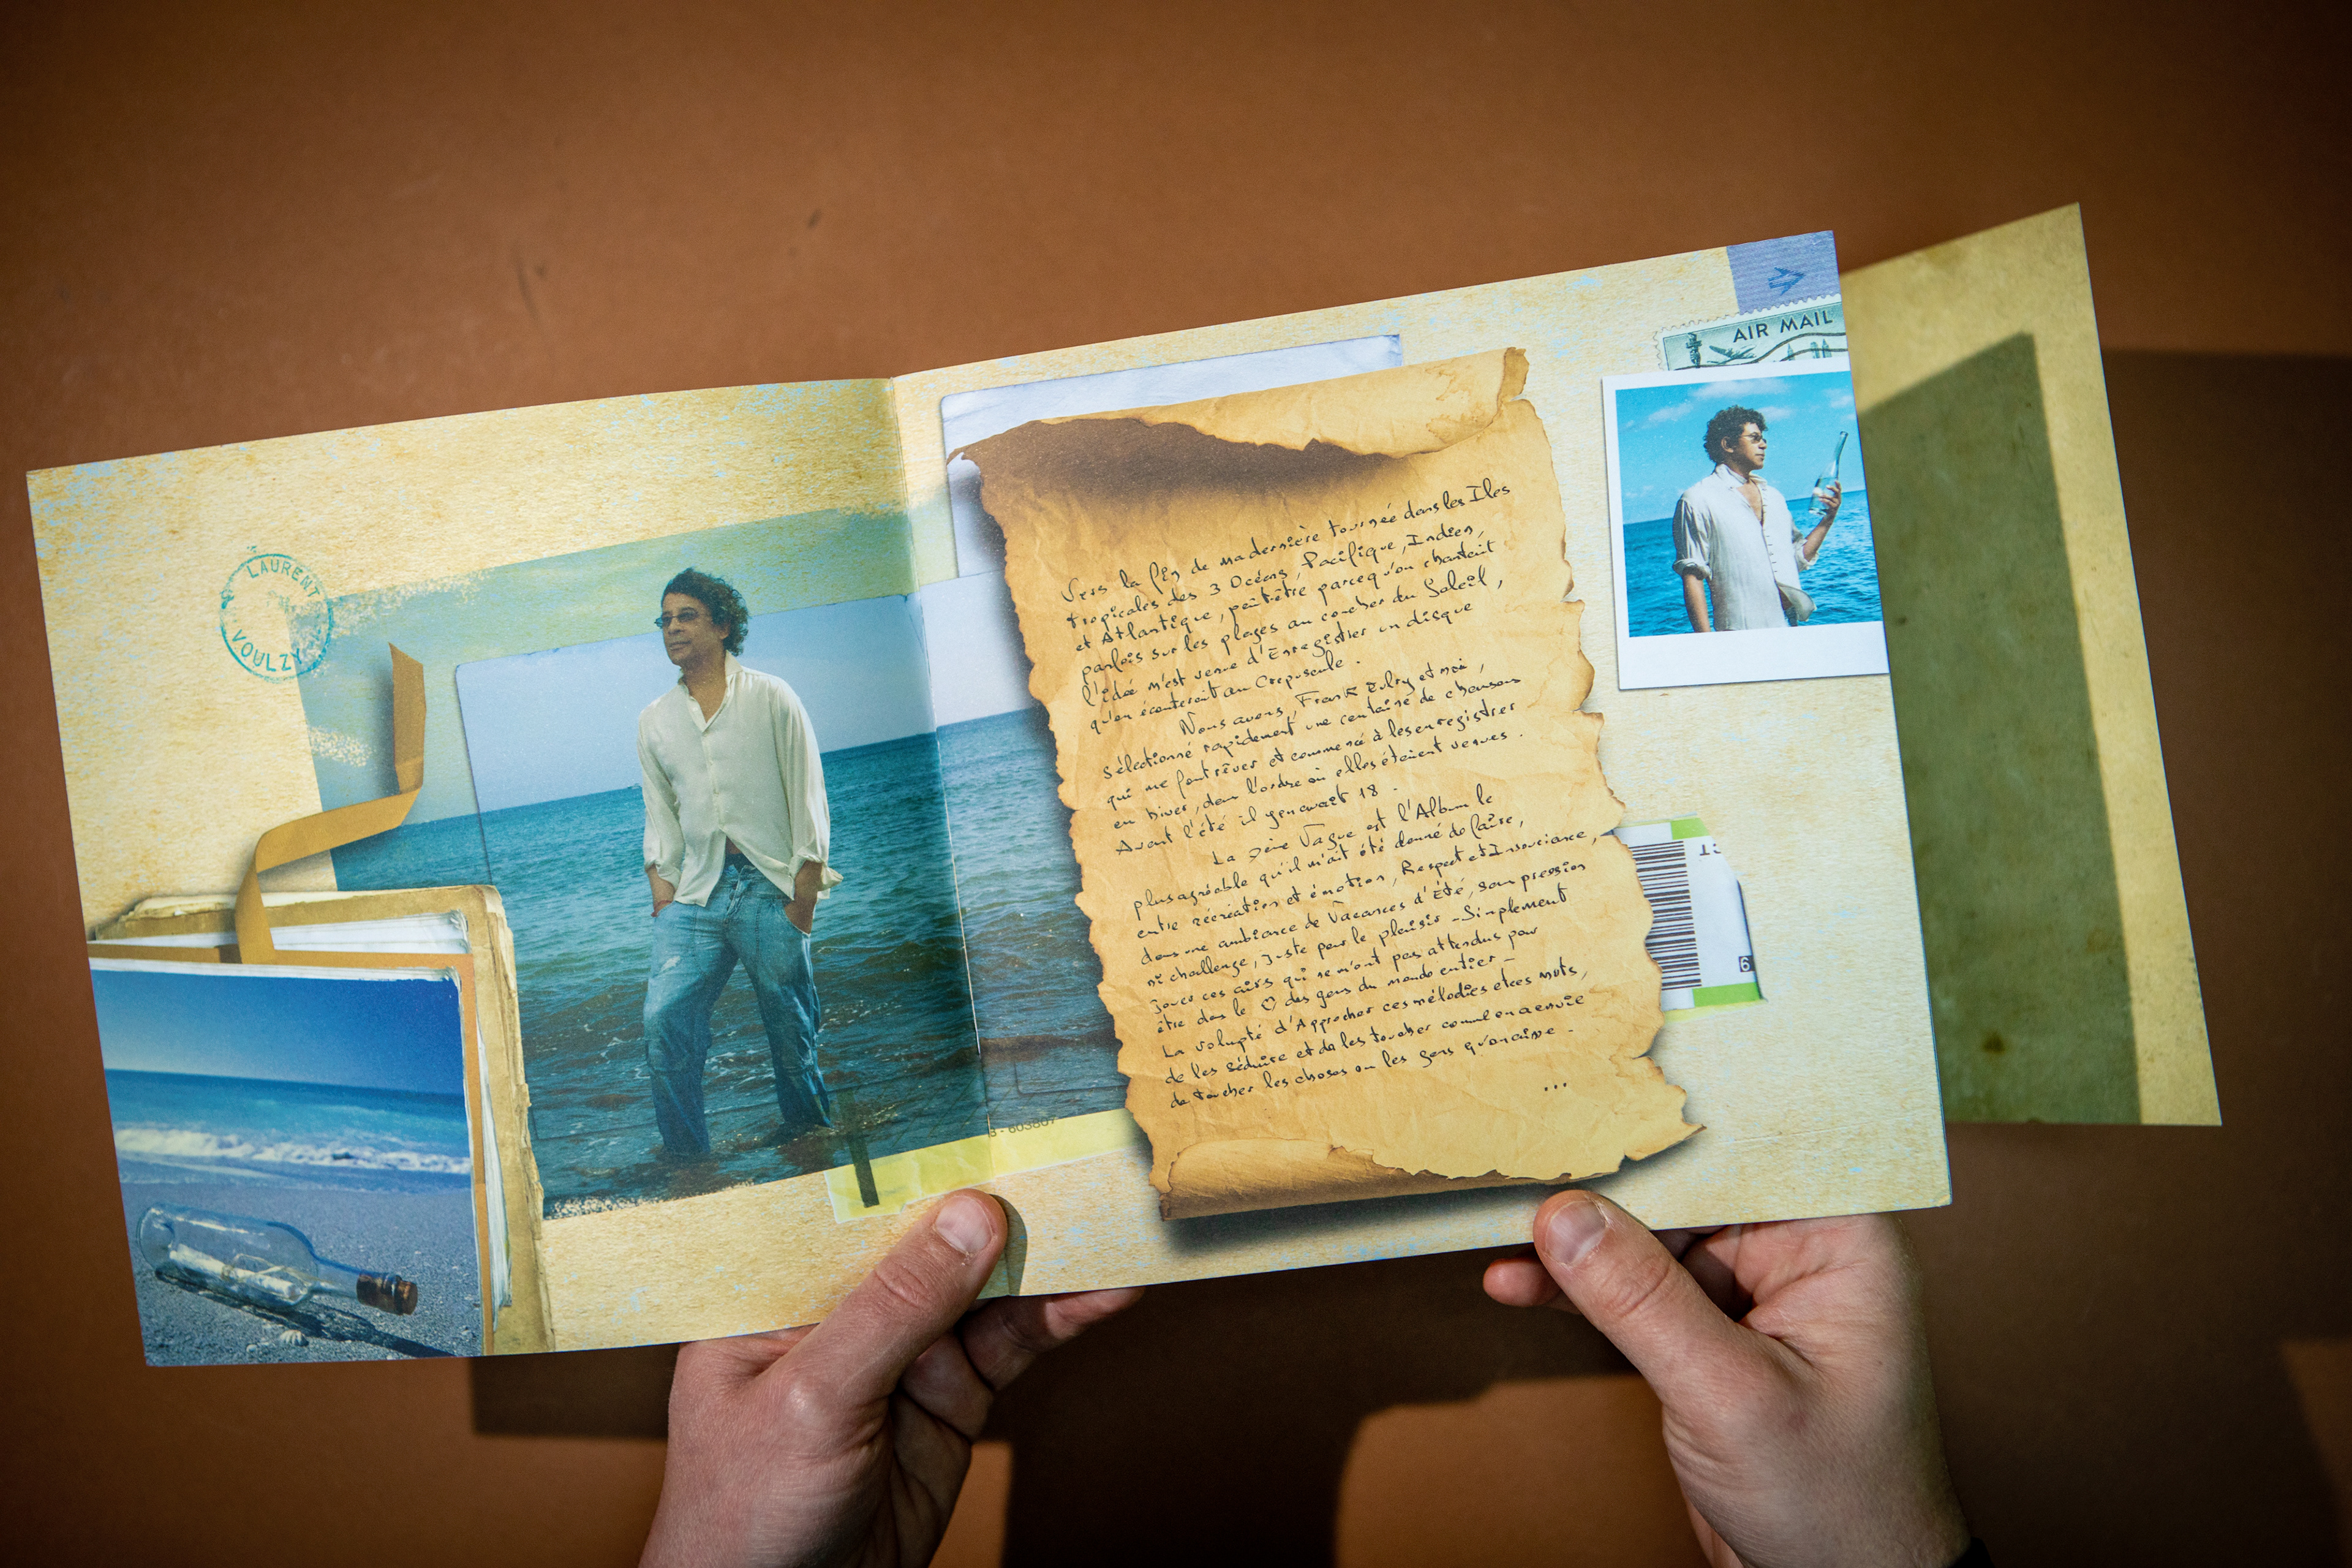 LAURENT
VOULZY
AIR MAIL
Vers la fin de ma dernière tournée dans les Iles
tropicales des 3 Océans, Pacifique, Indien,
et Atlantique, peut-être parcequ'on chantait
parfois sur les plages au coucher du Soleil,
l'idée m'est venue d'Enregistrer un disque
qu'on écouterait au Crépuscule.
Nous avons, Franck Eulry et moi,
sélectionné rapidement une centaine de chansons
qui me font rêver et commencé à les enregistrer
en hiver, dans l'ordre où elles étaient venues.
Avant l'été il y en avait 18.
La 7ème Vague est l'Album le
plus agréable qu'il m'ait été donné de faire,
entre récréation et émotion, Respect et Insouciance,
dans une ambiance de Vacances d'Été, sans pression
ni challenge, juste pour le plaisir - Simplement
jouer ces airs qui ne m'ont pas attendus pour
être dans le ♡ des gens du monde entier -
La volupté d'Approcher ces mélodies et ces mots,
de les séduire et de les toucher comme on a envie
de toucher les choses ou les gens qu'on aime -
...
6